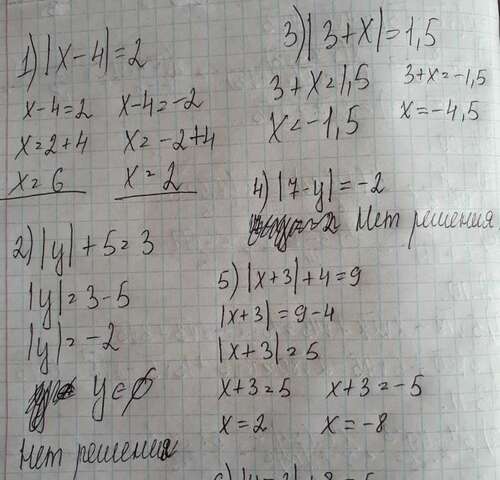 1) |x-4|=2
x-4=2 x-4=-2
x=2+4 x=-2+4
x=6 x=2
2) |y|+5=3
|y|=3-5
|y|=-2
y∈∅
Нет решения
3) |3+x|=1,5
3+x=1,5 3+x=-1,5
x=-1,5 x=-4,5
4) |7-y|=-2
Нет решения
5) |x+3|+4=9
|x+3|=9-4
|x+3|=5
x+3=5 x+3=-5
x=2 x=-8